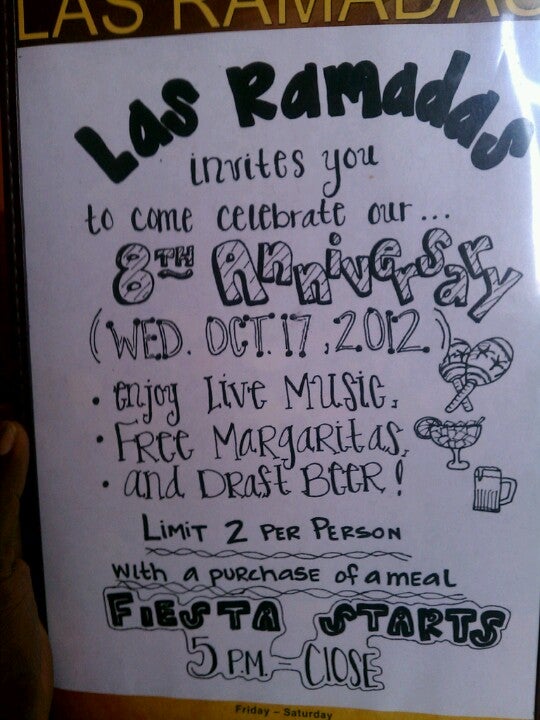 LAS RAMADAS
Las Ramadas
invites you
to come celebrate our...
8TH Anniversary
(WED. OCT. 17, 2012)
• enjoy Live Music,
• Free Margaritas,
• and Draft Beer!
Limit 2 per person
with a purchase of a meal
Fiesta Starts
5 P.M. – Close
Friday – Saturday